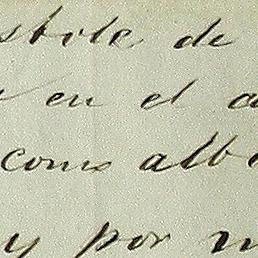 stole de
en el
como alb
y por